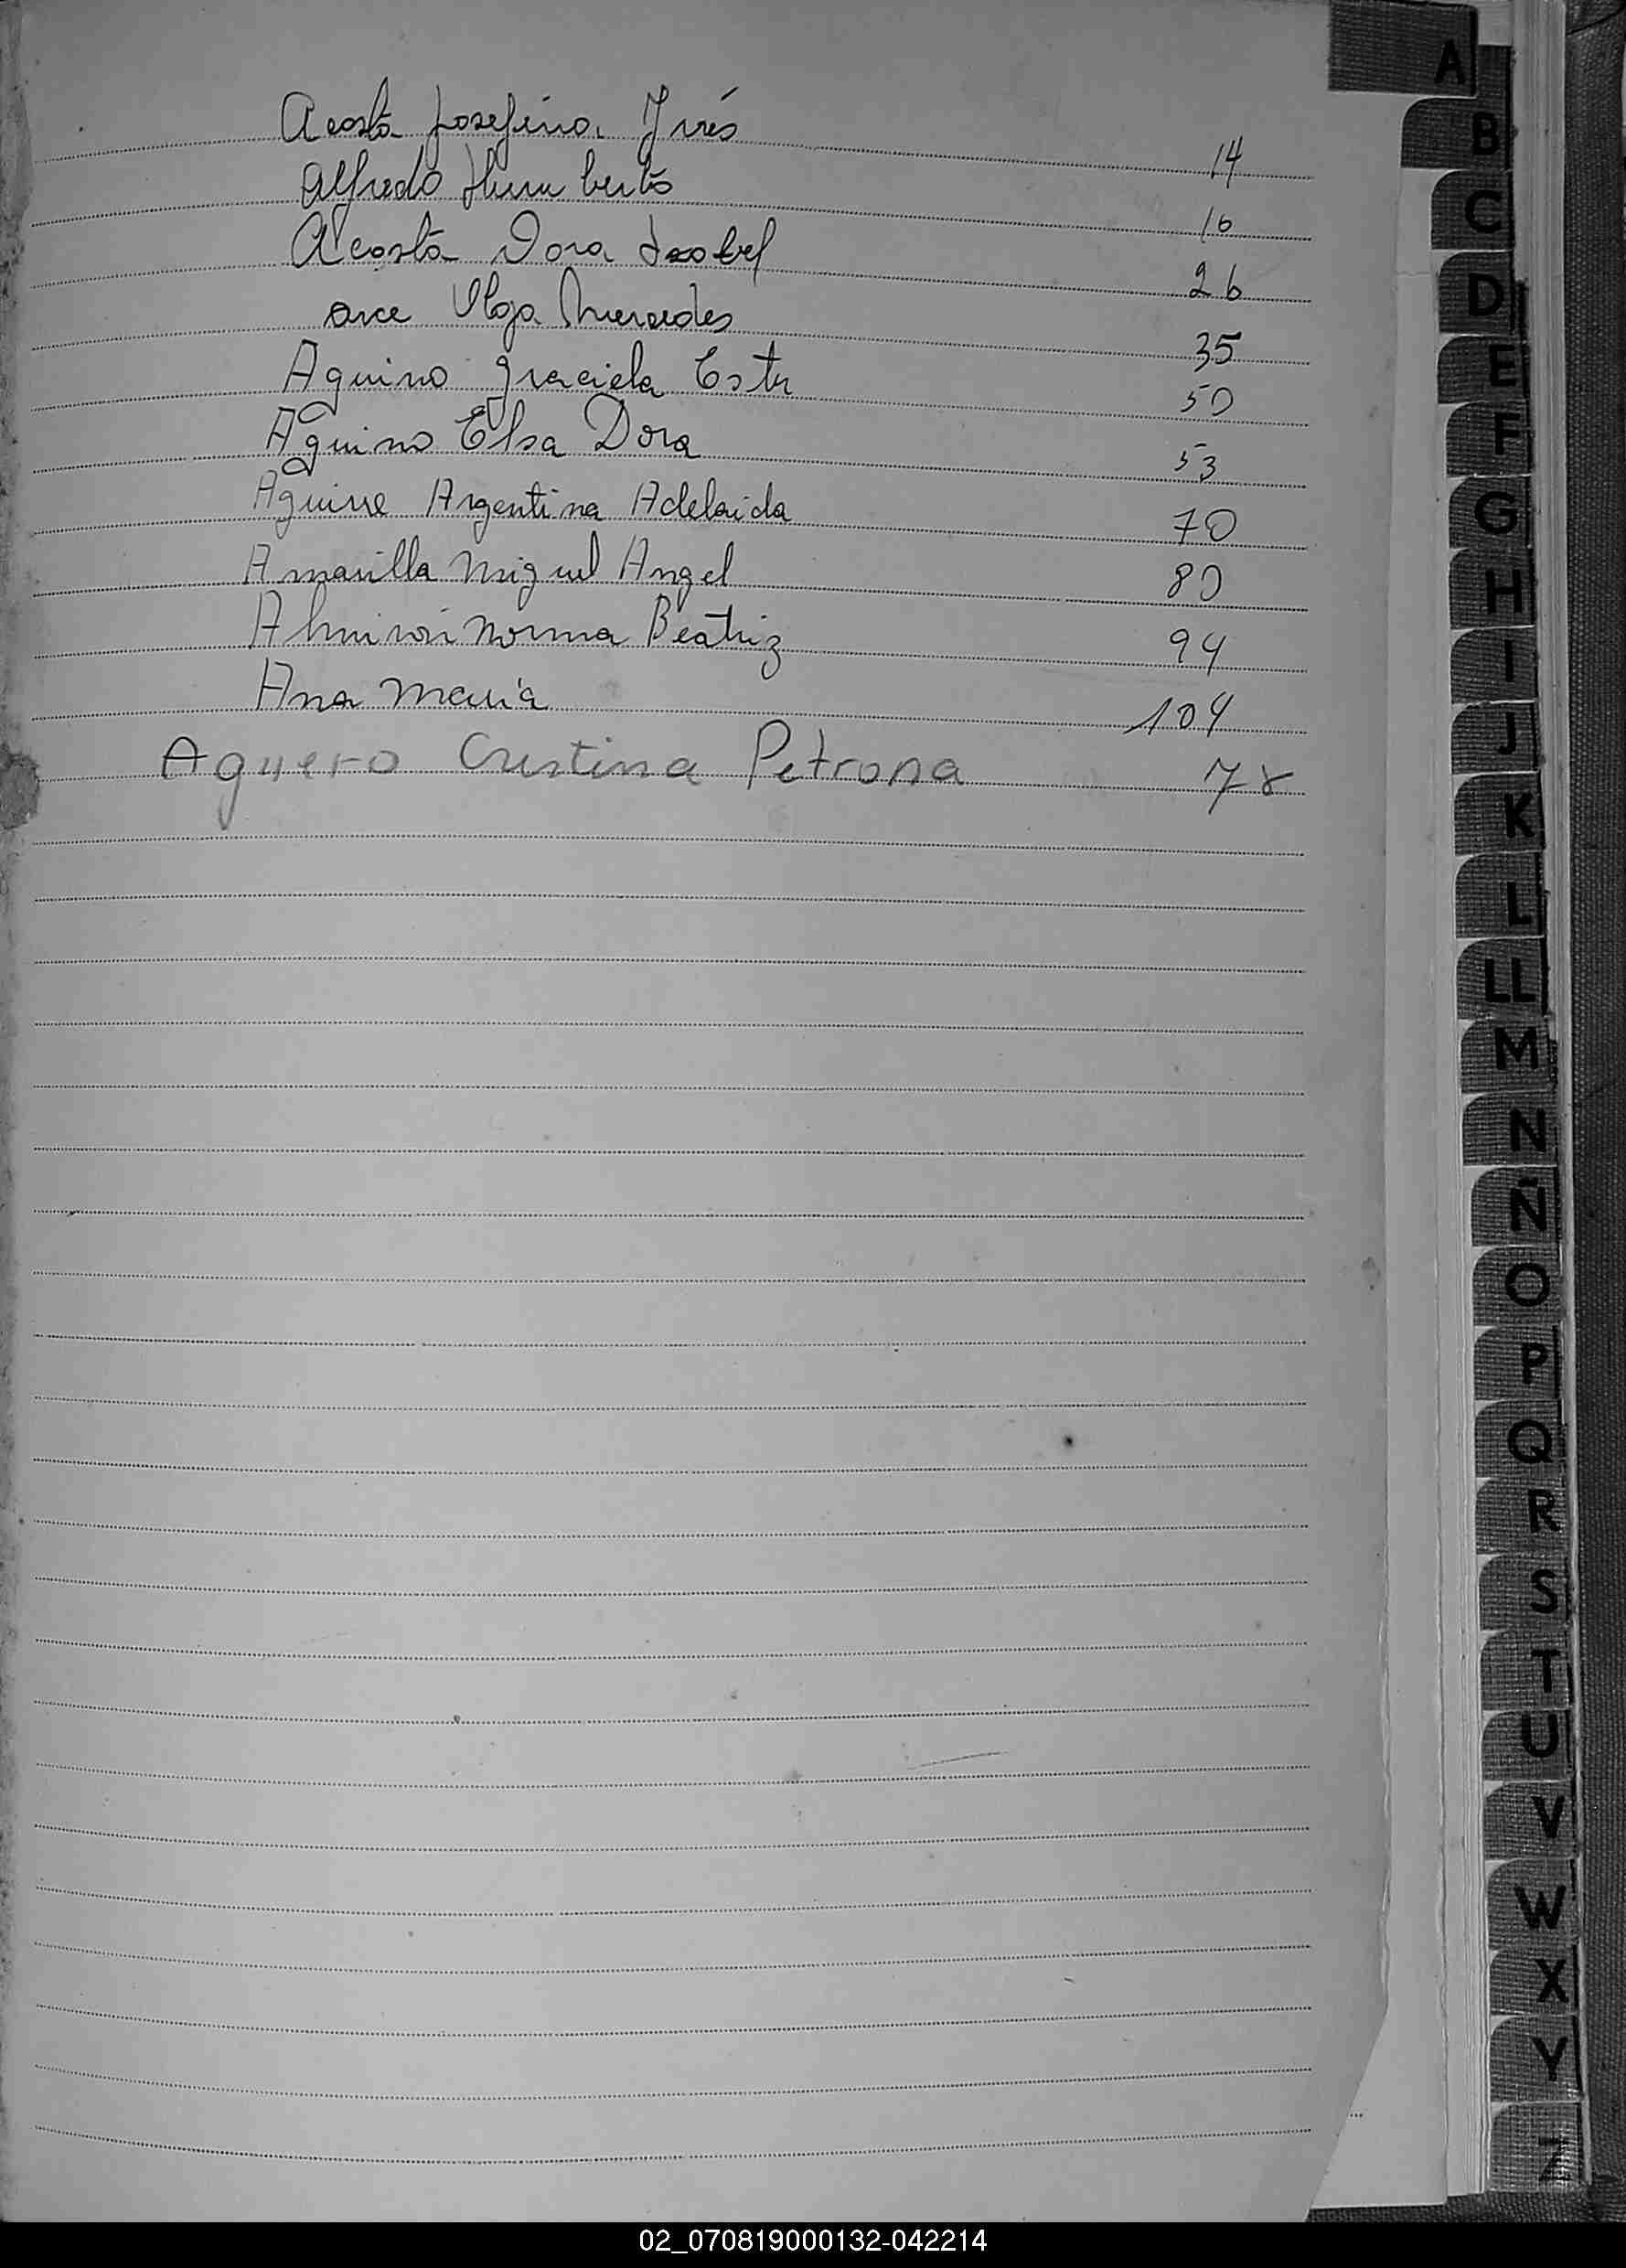 Acosta Josefina Inés 14
Alfredo Humberto 16
Acosta Dora Isabel 26
Arce Olga Mercedes 35
Aquino Graciela Ester 50
Aquino Elsa Dora 53
Aguirre Argentina Adelaida 70
Amarilla Miguel Angel 80
Almirón Norma Beatriz 94
Ana Maria 104
Aguero Cristina Petrona 78
A
B
C
D
E
F
G
H
I
J
K
L
LL
M
N
Ñ
O
P
Q
R
S
T
U
V
W
X
Y
Z
02_070819000132-042214